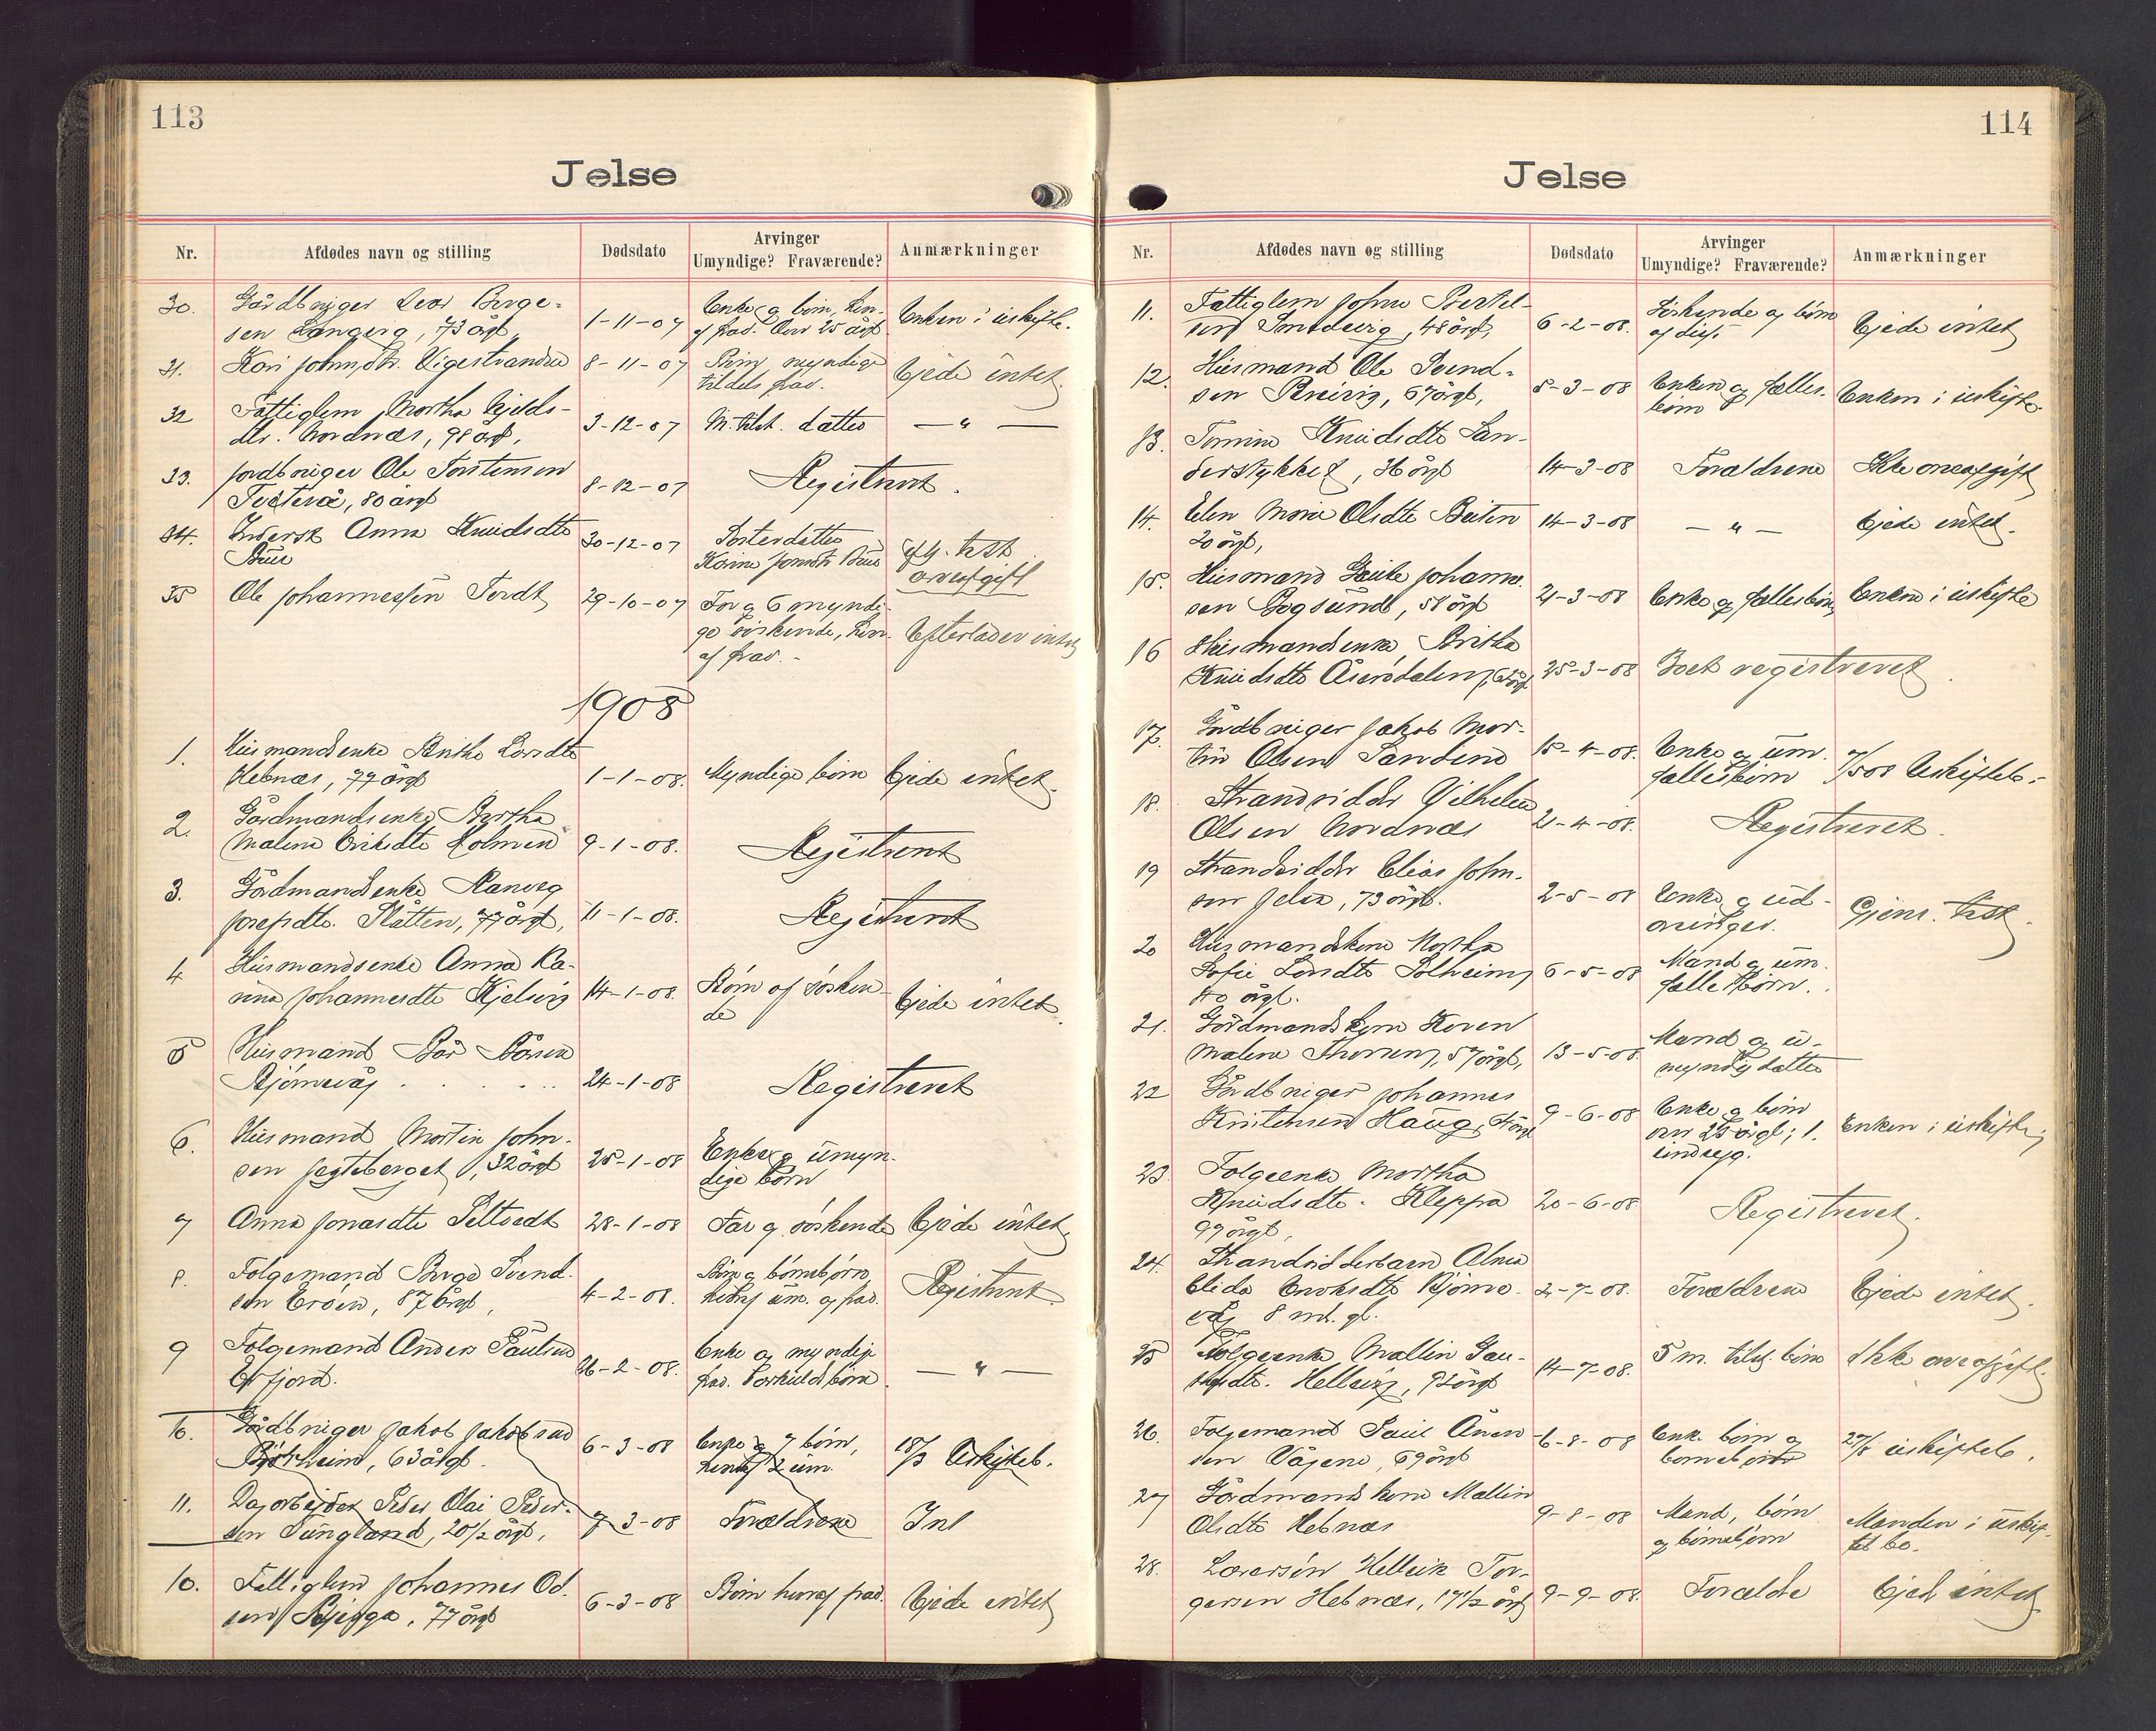 113
Jelse
Nr. Afdødes navn og stilling Dødsdato Arvinger Umyndige? Fraværende? Anmærkninger
30. Gårdbruger Ivar Berge-
sen, 73 årgl, 1-11-07 Enke og børn, her-
af frav. over 25 årgl. Enken i uskifte.
31. Kari Johnsdtr. Vigestranden 8-11-07 Børn myndige
tildels frav. Ejede intet
32 Fattiglem Martha
dtr. Nordnæs, 98 årgl, 3-12-07 datter — " —
33. Jordbruger Ole Torstensen
80 årgl 8-12-07 Registreret.
34. Inderst Anna Knudsdtr
30-12-07 Søsterdatter
arveafgift
35 Ole Johannessen 29-10-07 Far og 6 myndi-
ge søskende, her-
af frav. - Efterlader intet
1908
1. Husmandsenke Brithe Larsdtr
Hebnæs, 77 årgl 1-1-08. Myndige børn Ejede intet.
2. Gårdmandsenke Bertha
Malene Eriksdtr Holmen 9-1-08. Registreret
3. Gårdmandsenke Ranveg
Josefsdtr. Slåtten, 77 årgl, 11-1-08. Registreret
4 Husmandsenke Anna Ka-
rina Johannesdtr 14-1-08. Børn af søsken-
de Ejede intet.
5 Husmand Bår Bårsen
24-1-08 Registreret
6. Husmand Martin John-
sen Jegteberget, 32 årgl 25-1-08 Enke og umyn-
dige børn
7 Anna Jonasdtr 28-1-08 Far og søskende Ejede intet
8. Folgemand Berge Svend-
sen Erøen, 87 årgl, 4-2-08. Børn og børnebørn
heraf um. og frav. Registreret
9 Folgemand Anders Paulsen
Erfjord. 26-2-08. Enke og myndige
frav. — " —
10. Gårdbruger Jakob Jakobsen
63 årgl. 6-3-08 Enke og 7 børn,
heraf 2 um. 18/3 Uskifteb.
11. Dagarbejder Peder Olai Peder-
sen Tungland, 20 1/2 årgl, 7-3-08 Forældrene Int
10. Fattiglem Johannes Od-
sen, 77 årgl 6-3-08 Børn heraf frav. Ejede intet
114
Jelse
Nr. Afdødes navn og stilling Dødsdato Arvinger Umyndige? Fraværende? Anmærkninger
11. Fattiglem John Bertel-
sen Smedvig, 48 årgl, 6-2-08. Søskende og børn
af disse. Ejede intet
12. Husmand Ole Svend-
sen, 67 årgl, 5-3-08 Enken og fælles-
børn Enken i uskifte.
13. Tomine Knudsdtr San-
derstykket, 36 årgl 14-3-08 Forældrene Ikke arveafgift
14. Elen Marie Olsdtr
20 årgl, 14-3-08 — " — Ejede intet.
15. Husmand Gaute Johanne-
sen Bogsund, 58 årgl 21-3-08 Enke og fællesbørn Enken i uskifte
16 Husmandsenke Britha
Knudsdtr 25-3-08 Boet registreret.
17. Gårdbruger Jakob Mar-
tin Olsen 15-4-08. Enke og um.
fællesbørn 7/5 08 Uskifteb.
18. Strandsidder Vilhelm
Olsen Nordnæs 21-4-08. Registreret.
19 Strandsidder Elias John-
sen Jelse, 73 årgl. 2-5-08 Enke og ud-
arvinger. Gjens. test.
20 Husmandskone Martha
Sofie Larsdtr Solheim,
40 årgl. 6-5-08 Mand og um.
fællesbørn.
21. Gårdmandskone Karen
Malene Thorsen, 57 årgl, 13-5-08 Mand og u-
myndig datter
22 Gårdbruger Johannes
Kristensen Haug, 9-6-08 Enke og børn
over 25 årgl; 1.
Enken i uskifte
23. Folgeenke Martha
Knudsdtr. Kleppa
99 årgl, 20-6-08 Registreret.
24. Strandsidderbarn Alma
Elida
8 md. gl. 2-7-08. Forældrene Ejede intet.
25 Folgeenke Mallin Gau-
tesdtr., 92 årgl 14-7-08. 5 m. tilst. børn Ikke arveafgift.
26. Folgemand Paul Ånen-
sen Vågene, 69 årgl -6-8-08 Enke børn og
børnebørn 27/8 uskifteb.
27 Gårdmandskone Mallin
Olsdtr Hebnæs 9-8-08 Mand, børn
og børnebørn Manden i uskif-
tet bo.
28. Hellik Tor-
gersen Hebnæs, 17 1/2 årgl 9-9-08. Forældre Ejed intet